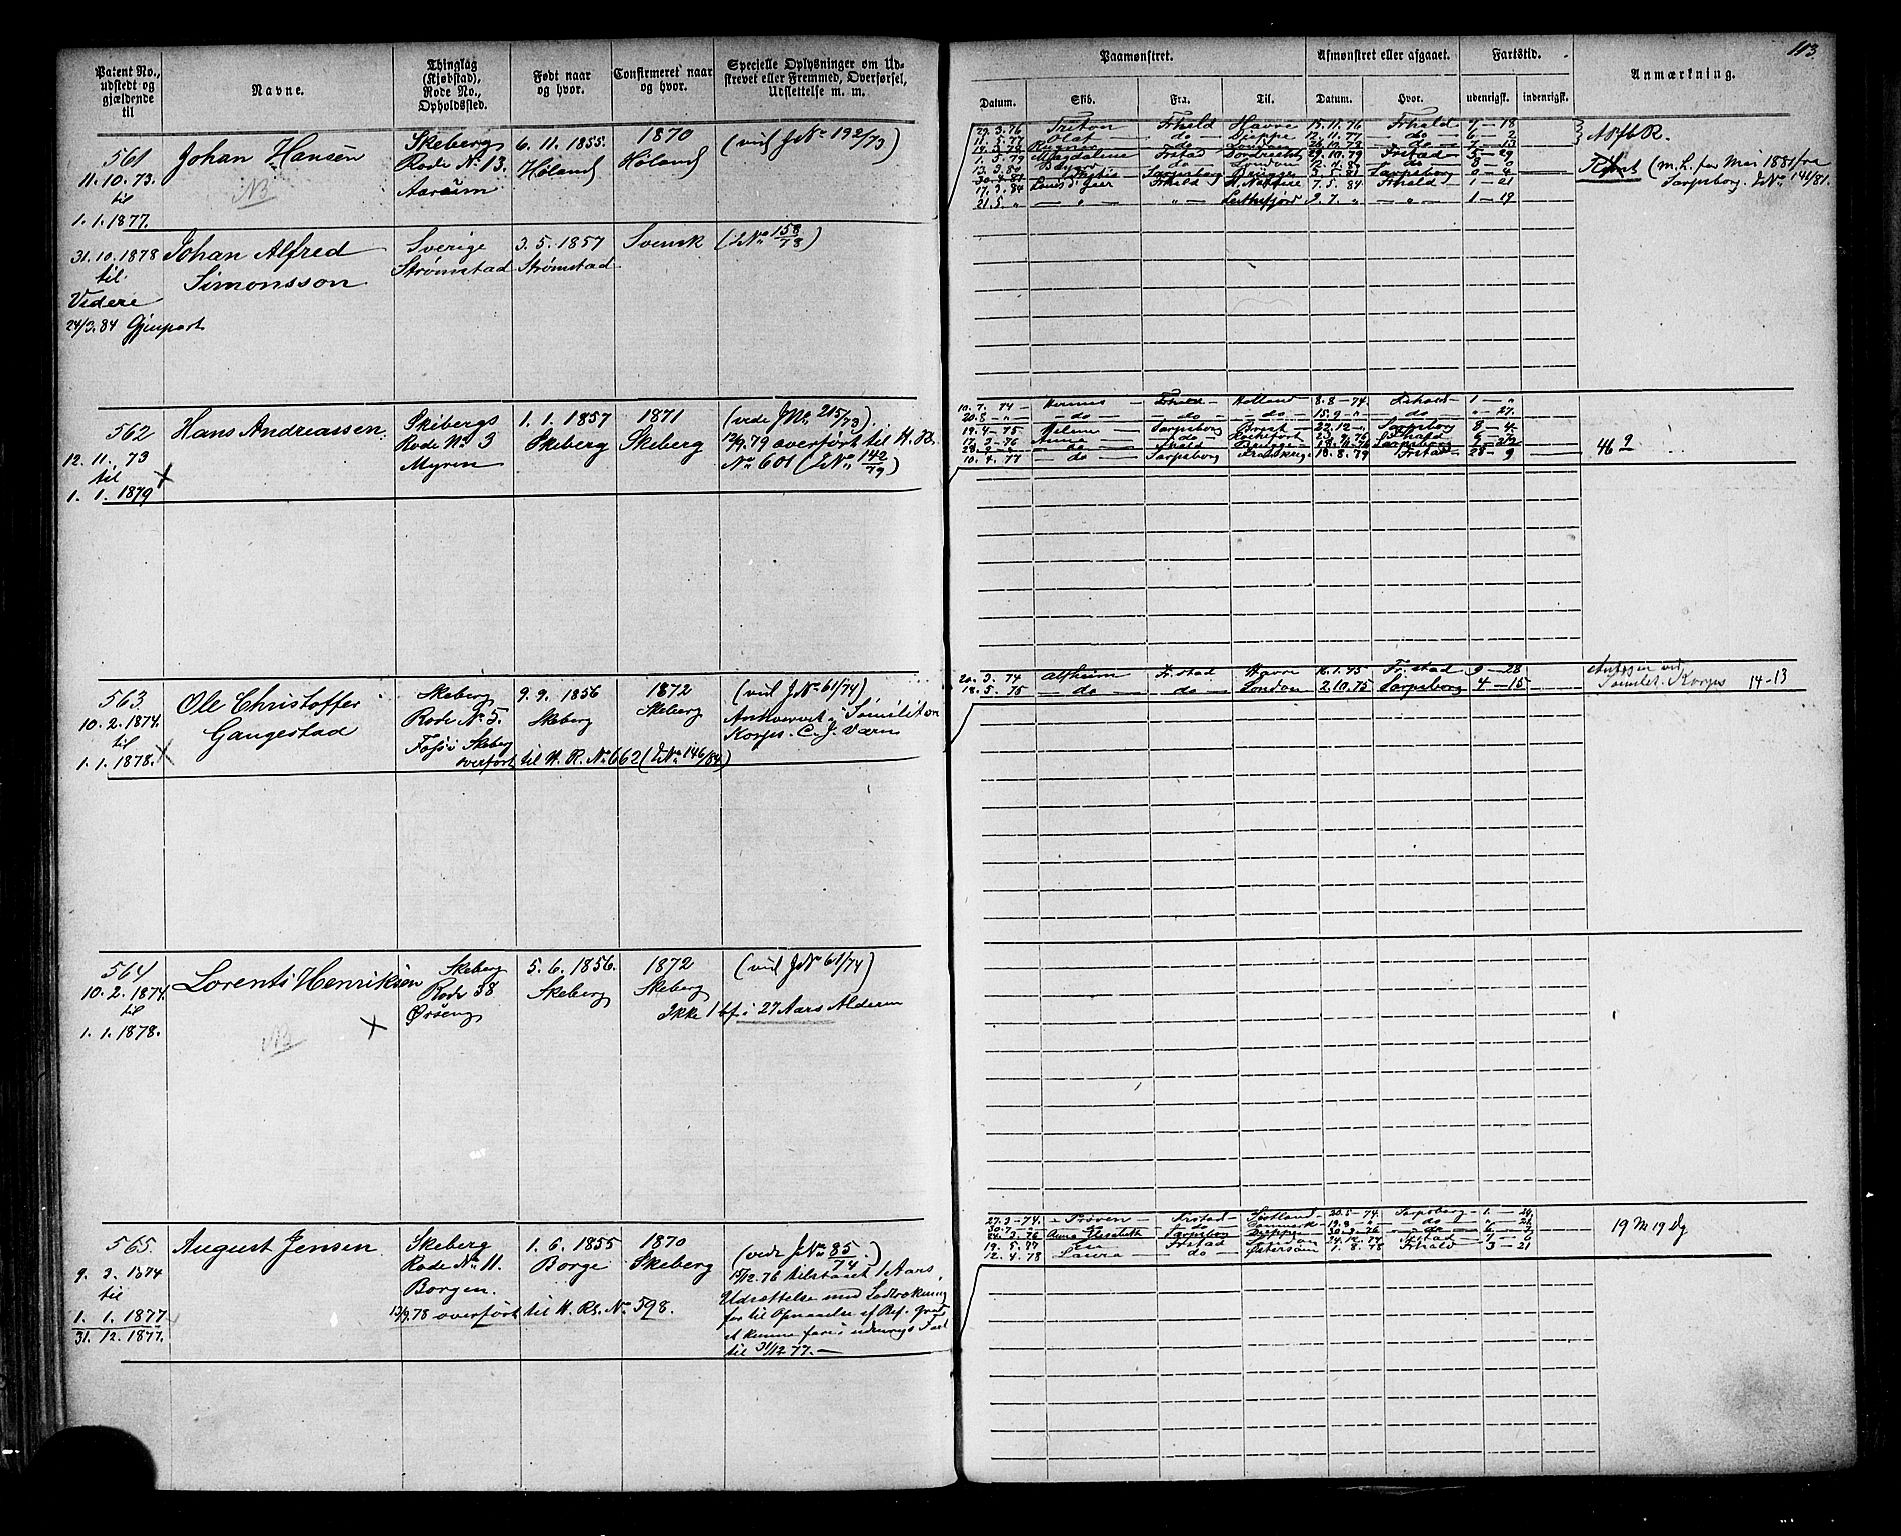 113.
Patent No., udstedt og gjældende til
Navne.
Thinglag (Kjøbstad), Rode No., Opholdssted.
Født naar og hvor.
Confirmeret naar og hvor.
Specielle Oplysninger om Udskrevet eller Fremmed, Overførsel, Udslettelse m. m.
Paamønstret.
Afmønstret eller afgaaet.
Fartstid.
Anmærkning.
Datum. Skib. Fra. Til. Datum. Hvor. udenrigsk. indenrigsk.
561 Johan Hansen Skeberg 6. 11. 1855. 1870 (vid J No 192/73)
11. 10. 73. Rode No 13. Høland Høland
til NB Aarum
1. 1. 1877.
31. 10. 1878 Johan Alfred Sverige 3. 5. 1857 Svensk (JNo 158/78)
til Simonsson Strømstad Strømstad
Videre
24/3. 84 Gjenpart
29. 3. 76 Triton Frhald Havre 15. 11. 76 Frhald 7 — 18
do Dieppe 12. 11. 77 do 6 — 2
do London do
1. 5. 79 Magdalene Frstad Dordrecht 29. 10. 79 Frstad 5 — 29
do London do
30. 4. 81 Sarpsborg Sarpsborg 0 — 4
17. 3. 84 Frhald 7. 5. 84 Frhald 1 — 21
21. 5. " — " — " — 9. 7. " — " — 1 — 19
(m. L. for Mai 1881 fra
Sarpsborg. JNo 141/81.
562 Hans Andreassen Skibergs 1. 1. 1857 1871 (vide JNo 215/73)
12. 11. 73 Rode No 3 Skeberg Skeberg 12/9. 79 overført til H. R.
til Myren No 601 (JNo 142/79)
1. 1. 1879
10. 7. 74 — Hermes Frhald Holland 8. 8 — 74 Frhald 1 — "
20. 8 — " — do — do — do 15. 9 — " — do — " — 27.
19. 4 — 75 Sarpsborg Brest 22. 12 — " Sarpsborg 8 — 4
17. 3 — 76 Anna do Rochefort Frhald
do
10. 4. 77 do Sarpsborg 18. 8. 79 Frstad 28 — 9
46 2
563 Ole Christoffer Skeberg 9. 9. 1856 1872 (vid J No 61/74)
10. 2. 1874. Gangestad Rode No 5. Skeberg Skeberg
til Korps. C. J. Værn
1. 1. 1878. Skeberg
overført til H. R. No 662 (JNo 146/84)
20. 3. 74 Alfheim Fr.stad Havre 16. 1. 75 Fr.stad 9 — 28
18. 5. 75 — do — do — London 2. 10. 75 Sarpsborg 4 — 15
Korps 14-13
564 Lorents Henriksen Skeberg 5. 6. 1856. 1872 (vid J No 61/74)
10. 2. 1874. Rode 38 Skeberg Skeberg
til Øsseng Ikke 1 bf i 27 Aars Alderen
1. 1. 1878. NB
565. August Jensen Skeberg 1. 6. 1855 1870 (vide JNo 85/74)
9. 3. 1874 Rode No 11. Borge Skeberg 15/12. 76 tilstaaet 1 Aars
til Borgen. Udsættelse med Lodtrækning
1. 1. 1877 12/9. 78 overført til H. R. No 598. for til Opnaaelse af Bef. Grad
31. 12. 1877. at kunne fare i udenrigs Fart
til 31/12 77. —
27. 3 — 74. Prøven Frstad Skotland 20. 5 — 74. Sarpsborg 1 — 24
do Danmark 19. 8 — " do
24. 3. 76 Anna Elisabeth Sarpsborg Dieppe 30. 9. 76 do 6 — 7
19. 5. 77 Frstad London 24. 12. 77 Frstad 7 — 6
12. 4. 78 Laura do Østersøen 1. 8. 78 Frhald 3 — 21
19 M 19 Dg